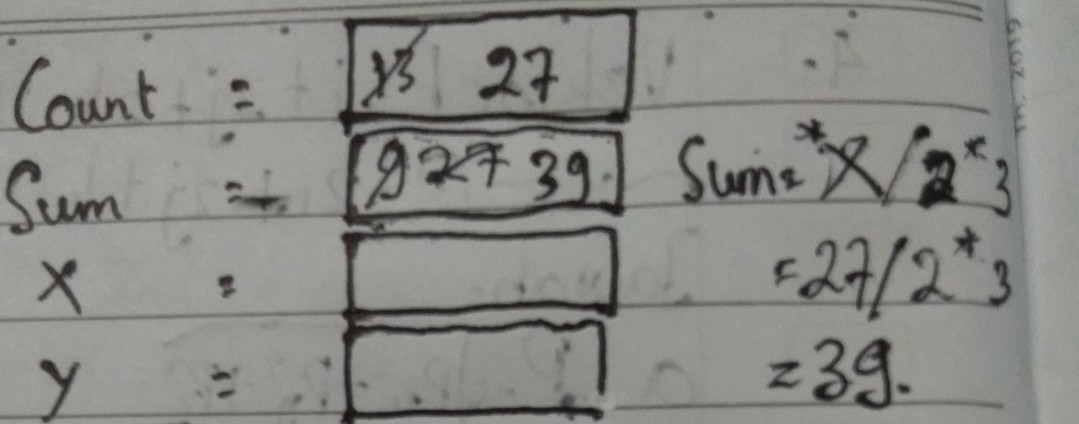 Count = 13 27
Sum = 9 27 39. Sum= *X/2*3
X = =27/2*3
Y = =39.